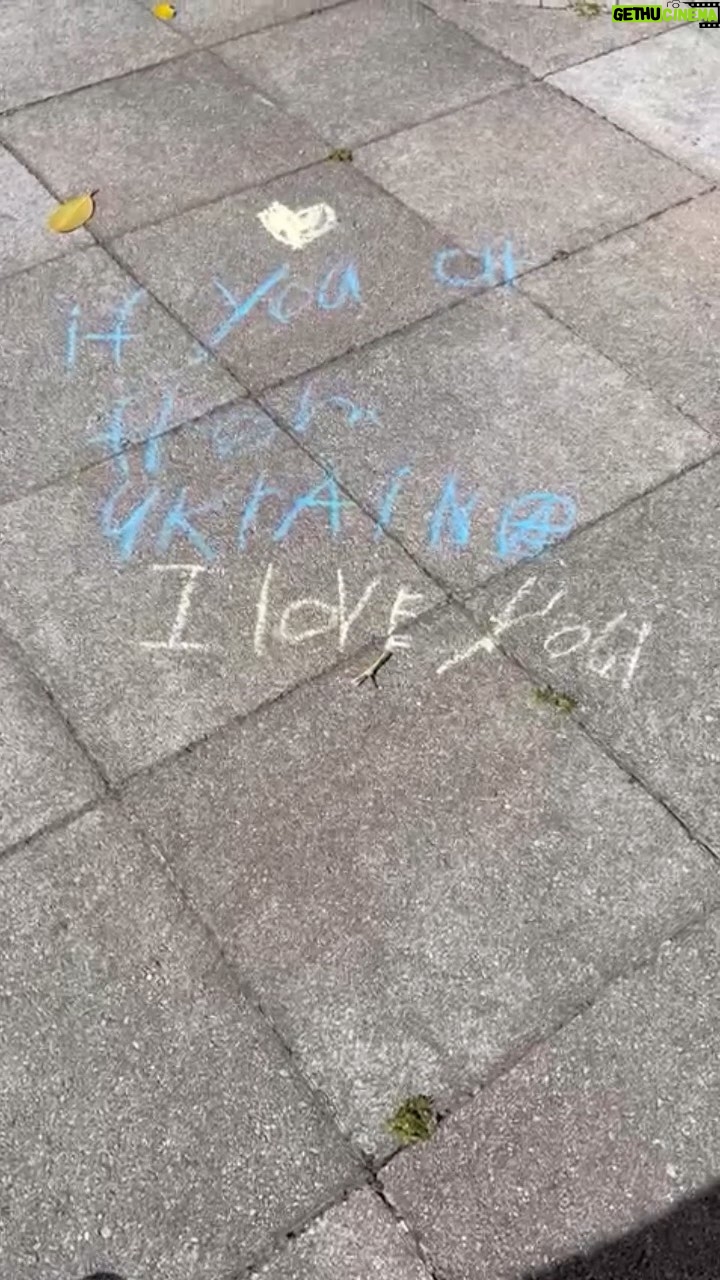 GETHU CINEMA
if you ar
from
UKrAIN
I lovE you